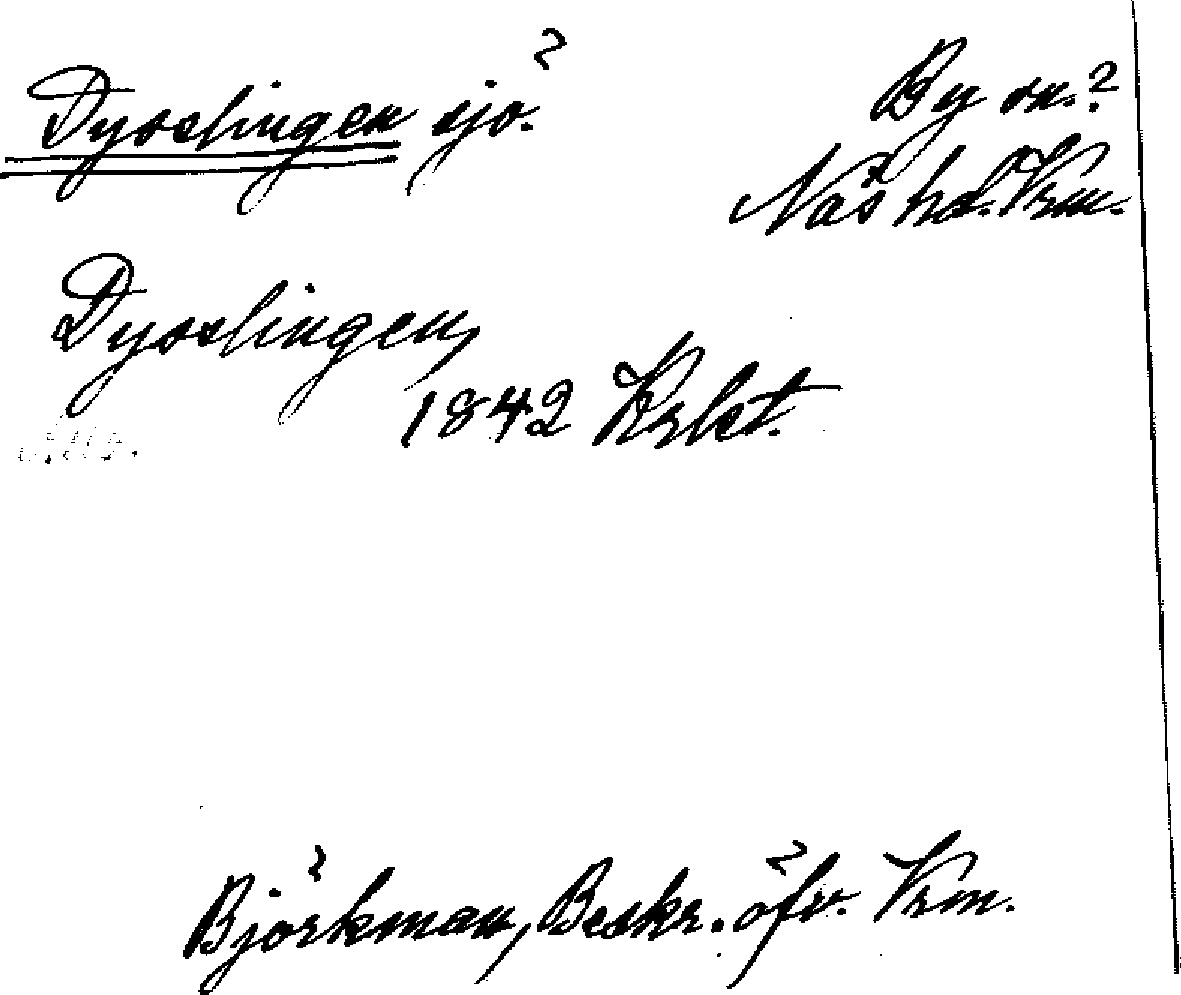 Dyoslingen sjö.
By sn.?
Näs hd. Vrm.
Dyoslingen,
1842 Krkt.
Björkman, Beskr. öfv. Vrm.